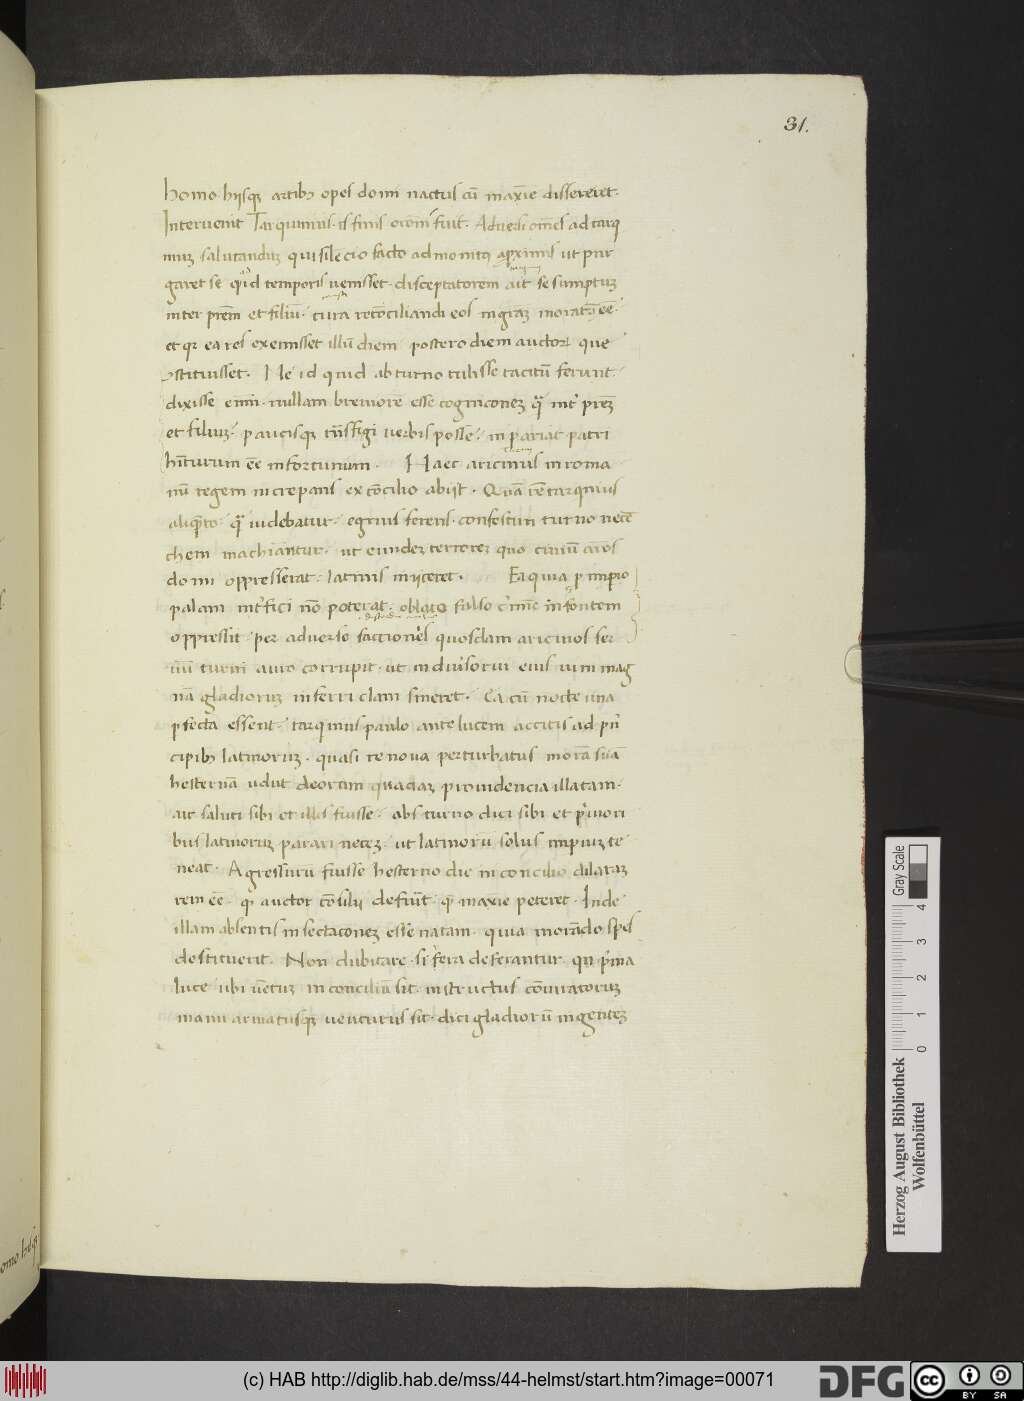 31.
homo. hijsq; artib; opes domi nactus cū maxīe dissereret.
Interuenit Tarquinius. is finis orōni fuit. Aduersi omēs ad tarq
niuz salutanduz qui silēcio facto admonitus a p̱ximis ut pur
garet se qđ id temporis uenisset. disceptatorem ait se sumptuz
inter prēm et filiū. cura recōciliandi eos in grāz moratū ēē.
et qr ea res exemisset illū diem postero diem auctor que
ꝯstituisset. Ne id quid ab turno tulisse tacitū ferunt.
dixisse enim. nullam breuiorē esse cognicōnez q̄ int̄ prez
et filiuz. paucisq; trāsfigi uerbis posse. ni pariat patri
hīturum ēē infortunium. Haec aricinus in roma
nū regem increpans ex cōcilio abijt. Quā rē tarquinius
aliq̄to q̄ uidebatur. egrius ferens. confestim turno necē
chem machiantur. ut eundez terrorez quo ciuiū aīos
domi oppresserat. latinis inijceret. Et quia p imperio
palam int̄fici nō poterat. oblato falso c̄mīe insontem
oppressit. per aduerse factionis quosdam aricinos ser
uū turni auro corrupit. ut in diuersoriū eius uim mag
nā gladioruz inferri clam sineret. Ea cū nocte una
pfecta essent. tarquinius paulo ante lucem accitis ad prī
cipib; latinoruz. quasi re noua perturbatus morā suā
hesternā uelut deorum quadaz prouidencia illatam.
ait saluti sibi et illis fuisse. abs turno dici sibi et p̄mori
bus latinoruz parari necez. ut latinorū solus impiuz te
neat. Agressurū fuisse hesterno die in concilio dilataz
rem ēē. qđ auctor cōsilij defuīt. quē maxie peteret. Inde
illam absentis insectacōnez esse natam. quia morādo spes
destituerit. Non dubitare. si uera deferantur quī p̄ma
luce ubi uētuz in conciliū sit. instructus cōiuratoruz
manu armatusq; uenturus sit. dici gladiorū ingentez
Herzog August Bibliothek
Wolfenbüttel
Gray Scale
0 1 2 3 4
(c) HAB http://diglib.hab.de/mss/44-helmst/start.htm?image=00071
DFG
cc BY SA